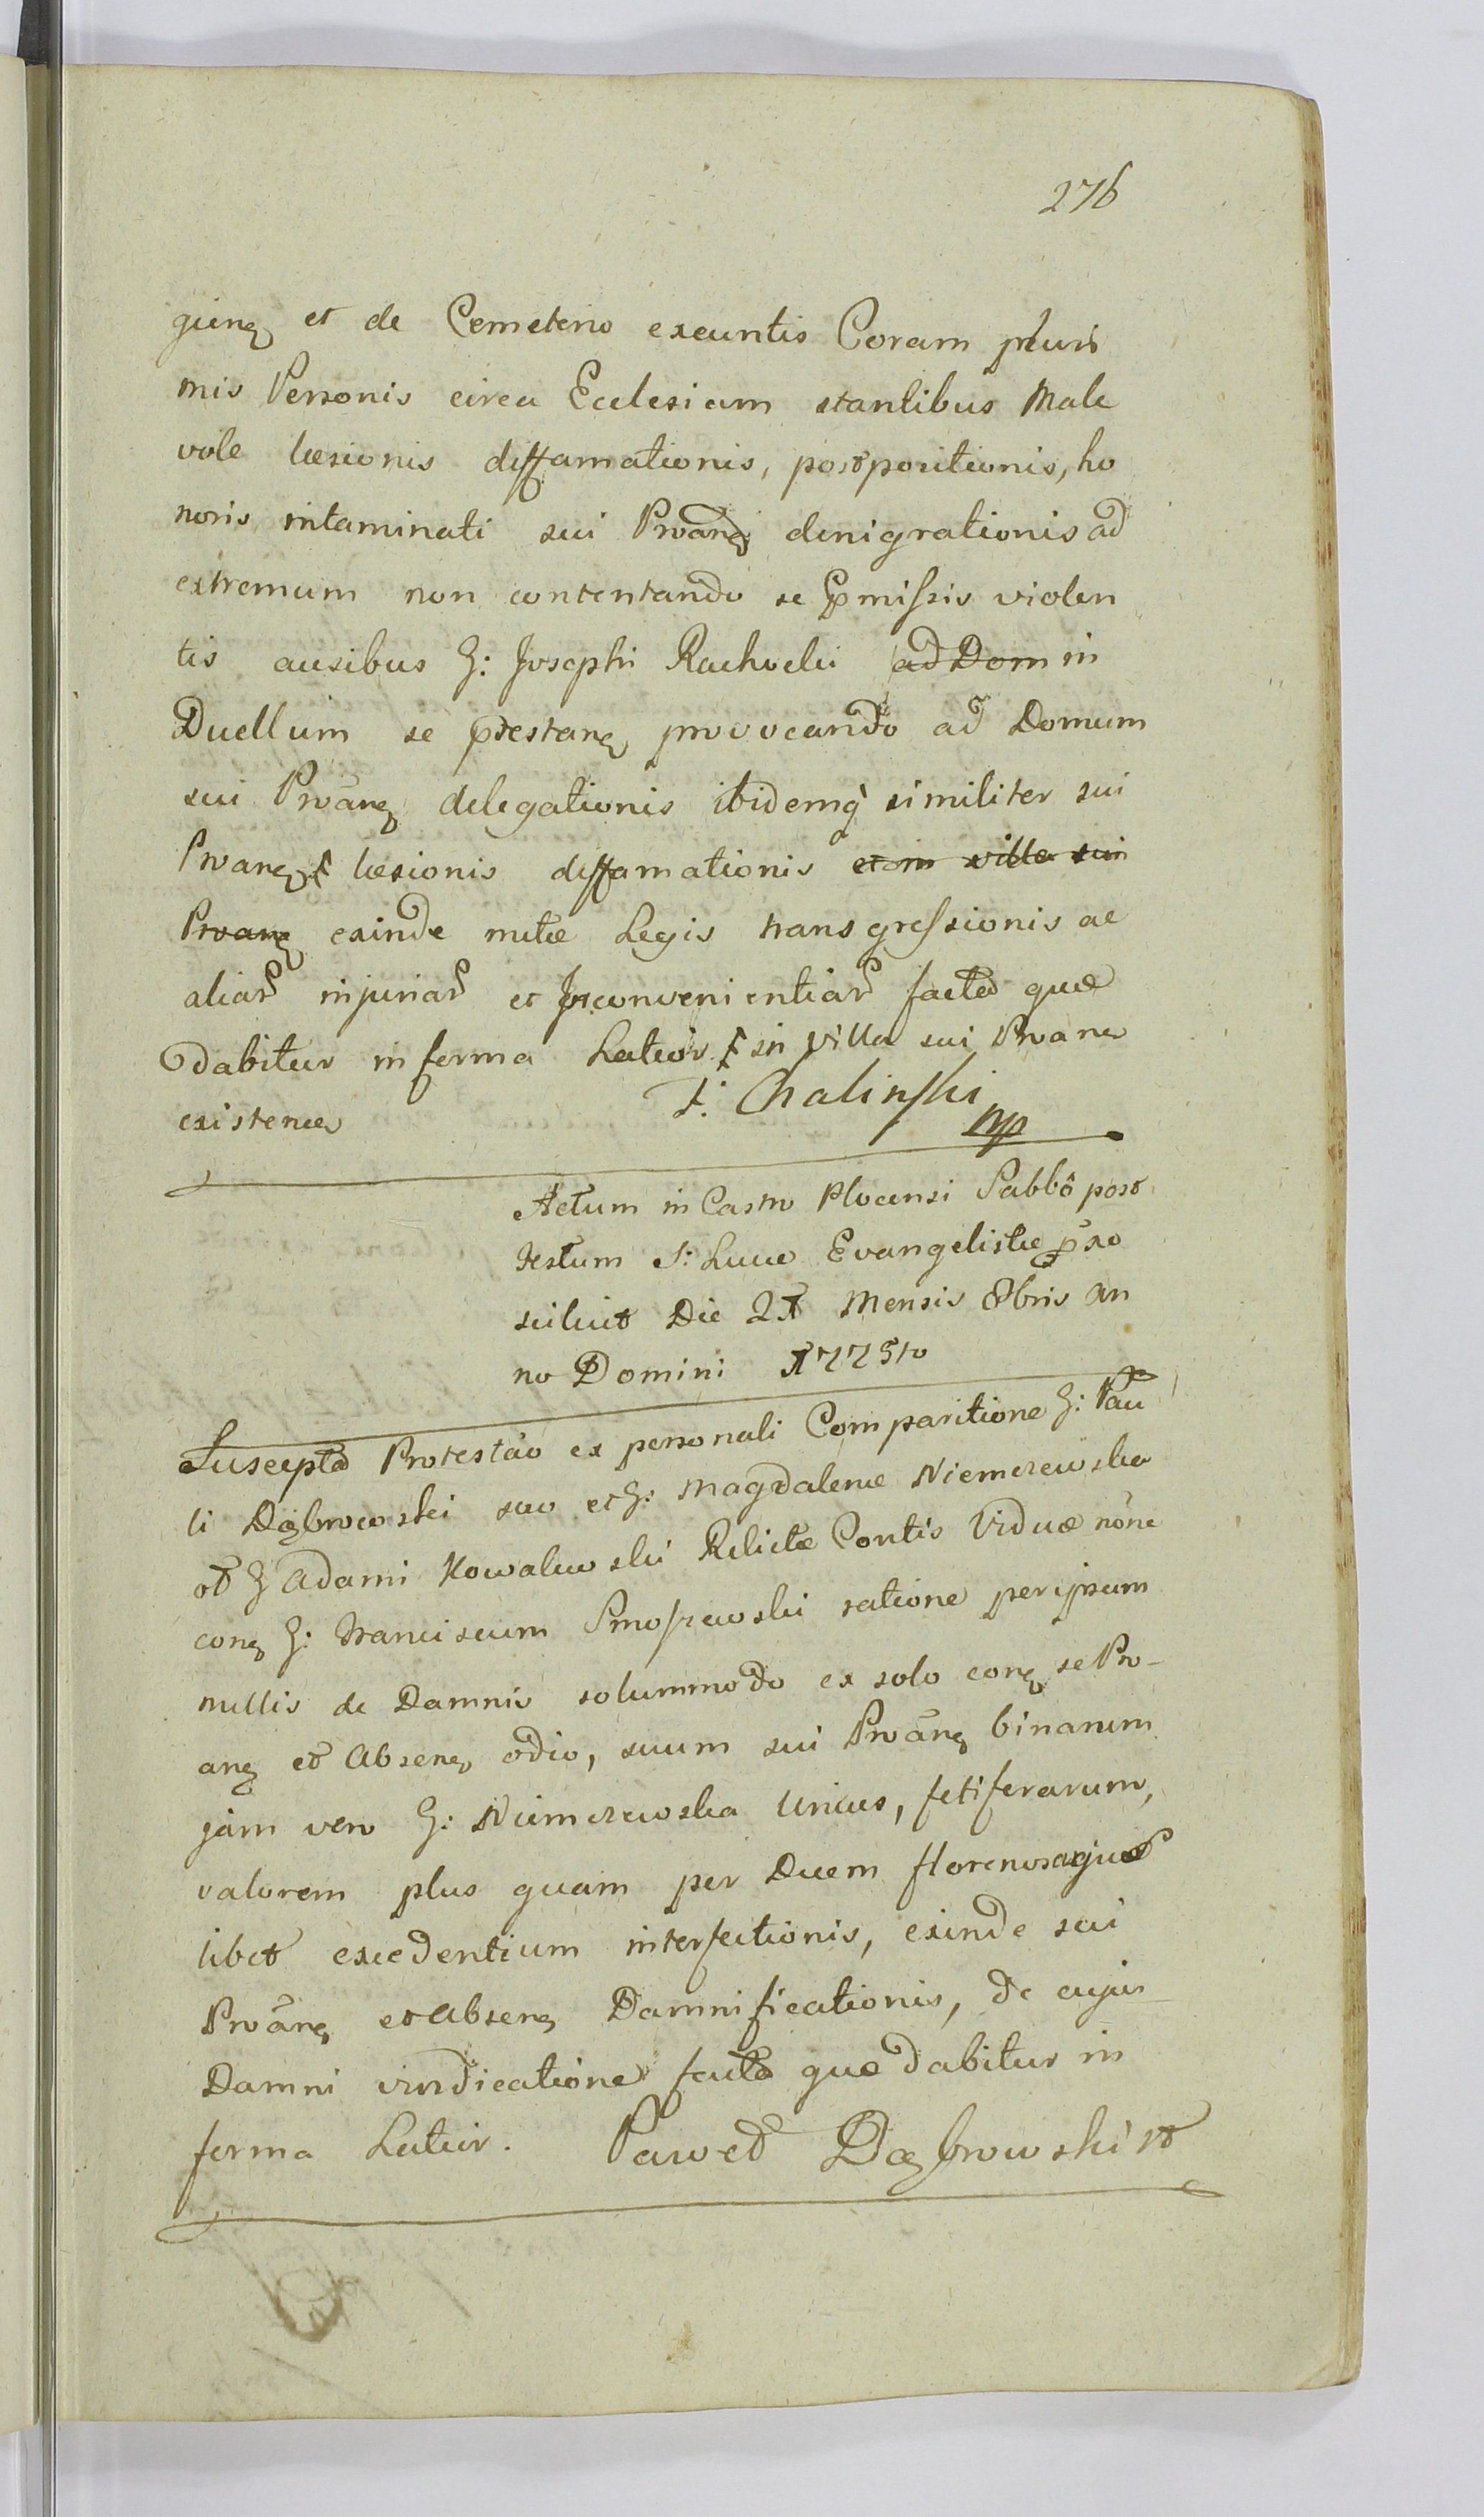 276
gieng et de Cemeterio exeuntis Coram pluri
mis Personis circa Ecclesiam stantibus Male
vole læsionis diffamationis, postpositionis, ho
noris intaminati sui Proâng denigrationis ad
extremum non contentando se pmissis violen
tis ausibus G: Josephi Rachocki ad Dom in
Duellum se præstang provocando ad Domum
sui Proâng delegationis ibidemq similiter sui
Proang læsionis diffamationis et in villa sui
Proang exinde mutæ Legis transgressionis ac
aliar injuriar et Inconvenientiar facta quæ
dabitur in forma Latior in villa sui Proang
existencę F. Chalinski
mp
Actum in Castro Plocensi Sabbô post
Festum S: Lucæ Evangelistæ pxo
Suscepta Protestâo ex personali Comparitione G: Pau
li Dąbrowski suo et G: Magdalenæ Niemczewska
ot G Adami Kowalewski Relictæ Contis Viduæ nône
cong G: Franciscum Smoszewski ratione per ipsum
nullis de Damnis solummodo ex solo cong se Pro-
ang et Abseng odio, suum sui Proâng binarum
jam vero G: Niemczewska Unius, fetiferarum,
valorem plus quam per Duem florenos
libet excedentium interfectionis, exinde sui
Proâng et Abseng Damnificationis, de cujus
Damni vindicatione facta quæ dabitur in
forma Latior. Paweł Dąbrowski